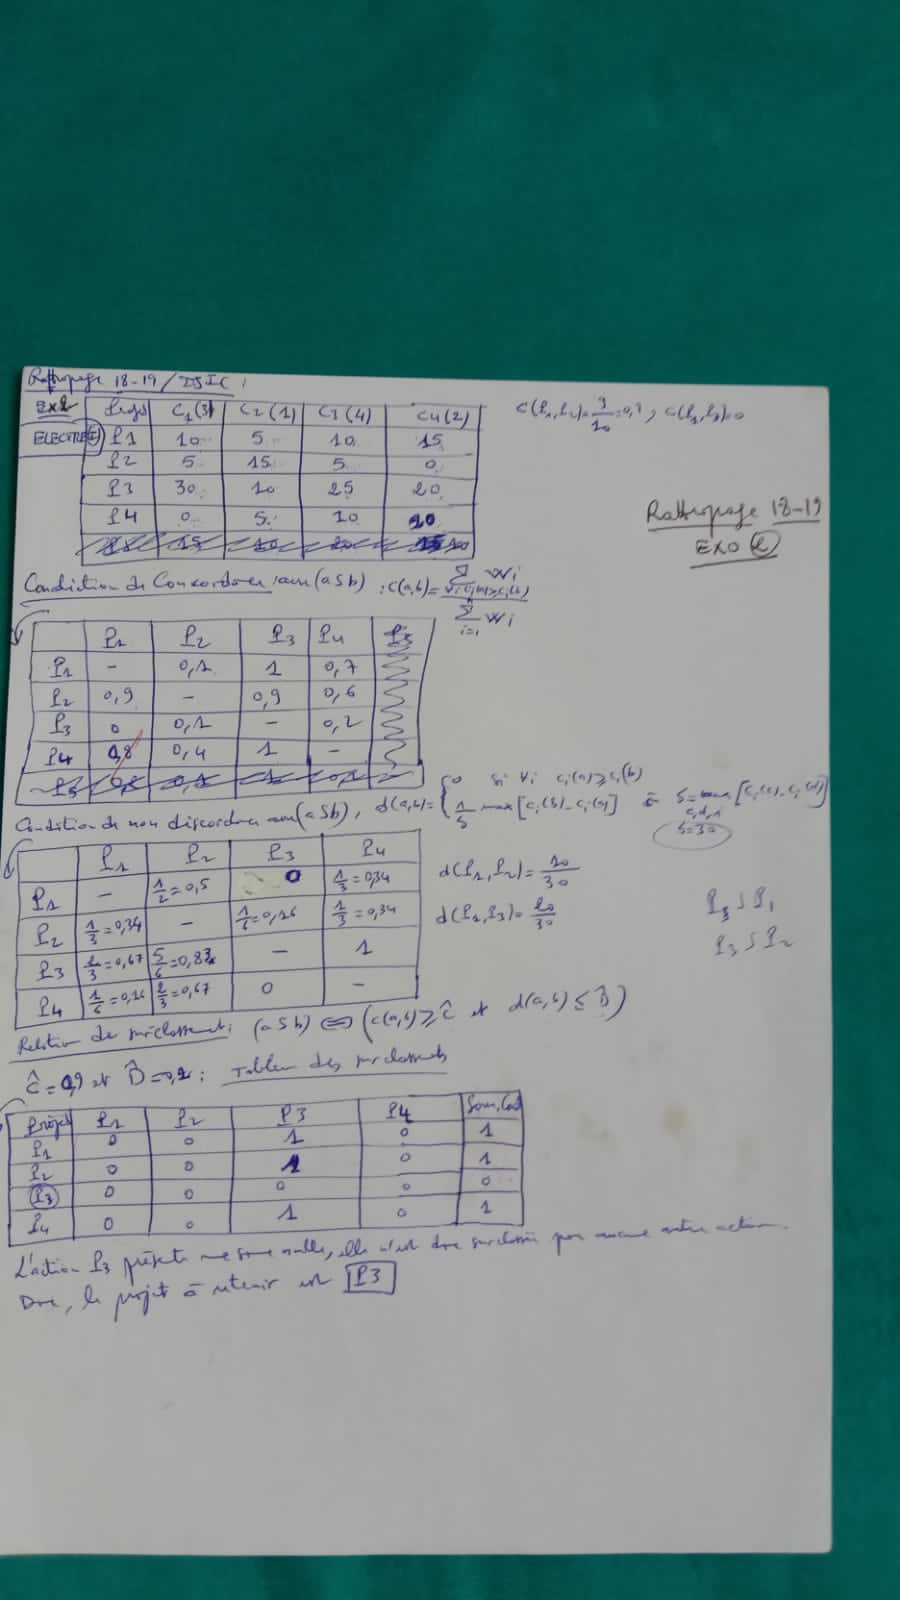 Rattrapage 18-19 / DSIC :
Ex 2
ELECTRE I
Projets C1(3) C2(1) C3(4) C4(2)
P1 10 5 10 15
P2 5 15 5 0
P3 30 10 25 20
P4 0 5 10 20
C(P1,P2)=9/10=0,9, C(P1,P3)=0
Rattrapage 18-19
EXO 2
Condition de Concordance (aSb) : C(a,b)= Σ Wi / Σ Wi
∀i ci(a)≥ci(b)
i=1
P1 P2 P3 P4
P1 - 0,1 1 0,7
P2 0,9 - 0,9 0,6
P3 0 0,1 - 0,2
P4 0,8 0,4 1 -
Condition de non discordance (aSb), d(a,b)= { 0 si ∀i ci(a)≥ci(b)
1/δ max[ci(b)-ci(a)] où δ=max[ci(c)-ci(d)]
c,d,i
δ=30
P1 P2 P3 P4
P1 - 1/2=0,5 0 1/3=0,34
P2 1/3=0,34 - 1/6=0,16 1/3=0,34
P3 2/3=0,67 5/6=0,83 - 1
P4 1/6=0,16 2/3=0,67 0 -
d(P1,P2)=10/30
d(P1,P3)=20/30
P3 S P1
P3 S P2
Relation de surclassement : (aSb) ⟺ (c(a,b)≥Ĉ et d(a,b)≤D̂)
Ĉ=0,9 et D̂=0,2 ; Tableau des surclassements
Projets P1 P2 P3 P4
P1 0 0 1 0 1
P2 0 0 1 0 1
P3 0 0 0 0 0
P4 0 0 1 0 1
L'action P3 présente une somme nulle, elle n'est donc surclassée par aucune autre action.
Donc, le projet à retenir est P3